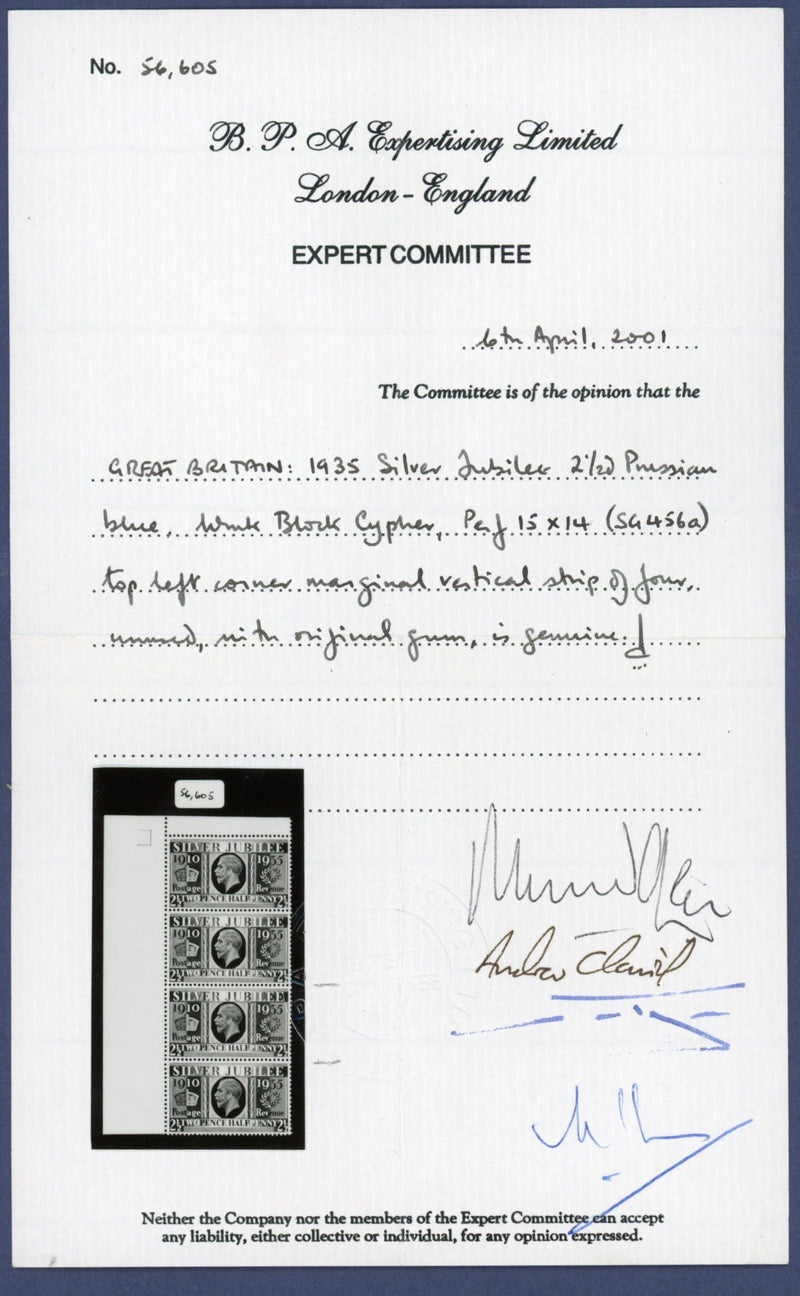 No. 56,605
B. P. A. Expertising Limited
London - England
EXPERT COMMITTEE
6th April, 2001
The Committee is of the opinion that the
GREAT BRITAIN: 1935 Silver Jubilee 2½d Prussian
blue, Wmk Block Cypher, Perf 15 x 14 (SG456a)
top left corner marginal vertical strip of four,
unused, with original gum, is genuine.
56,605
SILVER JUBILEE
1910 1935
Postage Revenue
2½ TWO PENCE HALF PENNY 2½
SILVER JUBILEE
1910 1935
Postage Revenue
2½ TWO PENCE HALF PENNY 2½
SILVER JUBILEE
1910 1935
Postage Revenue
2½ TWO PENCE HALF PENNY 2½
SILVER JUBILEE
1910 1935
Postage Revenue
2½ TWO PENCE HALF PENNY 2½
Neither the Company nor the members of the Expert Committee can accept
any liability, either collective or individual, for any opinion expressed.